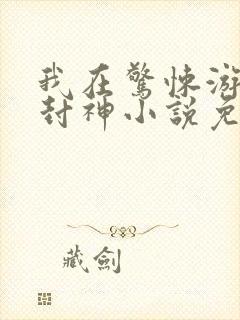 我在驚悚游
封神小說免
藏劍